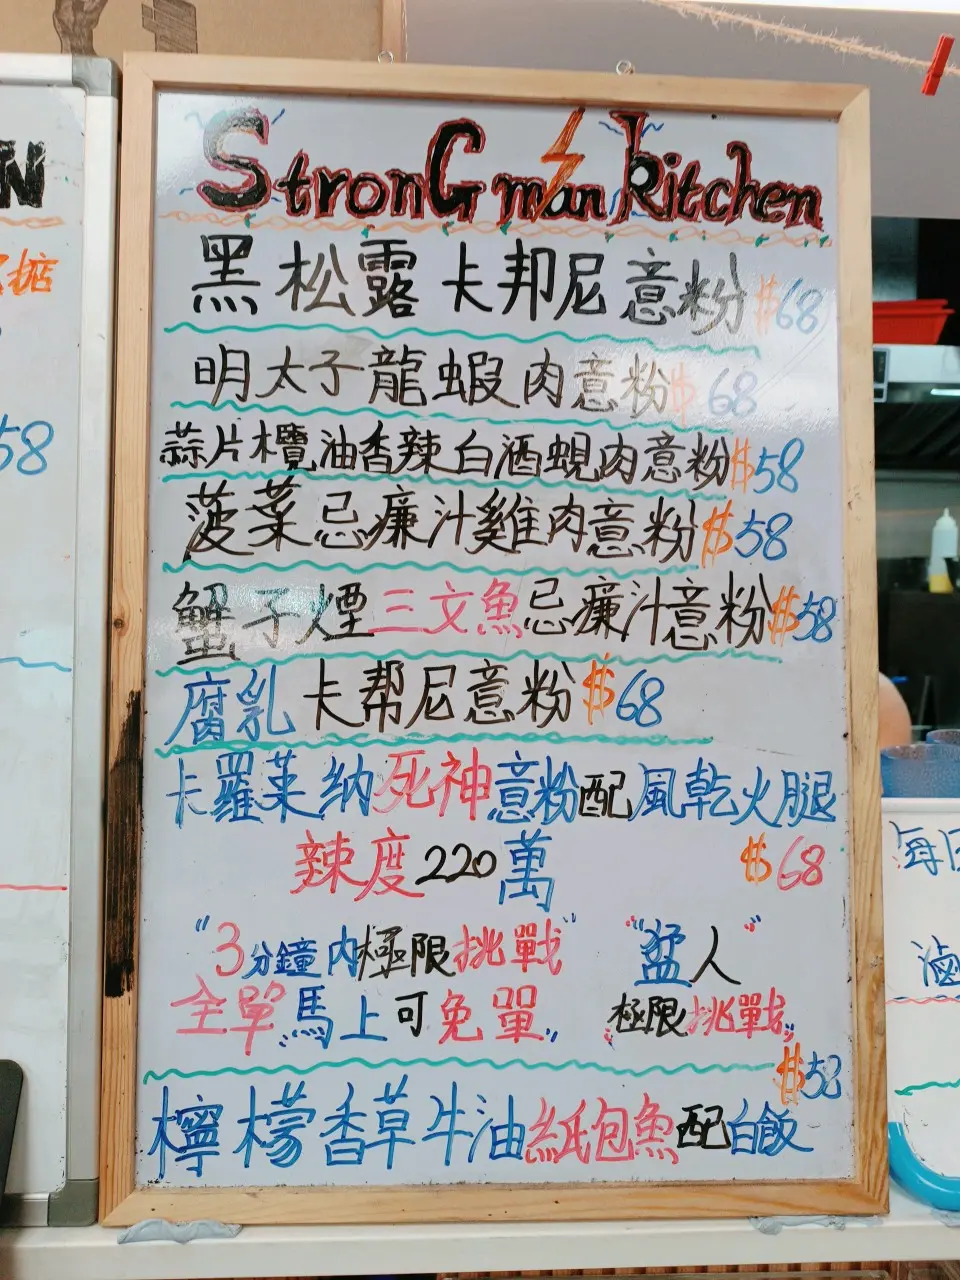 StronG man kitchen
黑松露卡邦尼意粉 $68
明太子龍蝦肉意粉 $68
蒜片欖油香辣白酒蜆肉意粉 $58
菠菜忌廉汁雞肉意粉 $58
蟹子煙三文魚忌廉汁意粉 $58
腐乳卡帮尼意粉 $68
卡羅莱纳死神意粉配風乾火腿
辣度220萬 $68
"3分鐘内極限挑戰" "猛人"
全單馬上可免單" "極限挑戰"
$58
檸檬香草牛油紙包魚配白飯
N
58
每日
滷